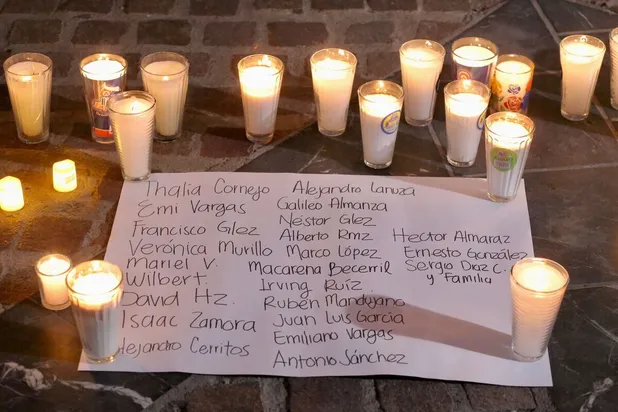 Thalia Cornejo
Emi Vargas
Francisco Glez
Verónica Murillo
Mariel V.
Wilbert
David Hz.
Isaac Zamora
lejandro Cerritos
Alejandro Lanuza
Galileo Almanza
Néistor Glez
Alberto Rmz
Marco López
Macarena Becerril
Irving Ruíz
Rubén Mandujano
Juan Luis Garcia
Emiliano Vargas
Antonio Sánchez
Hector Almaraz
Ernesto González
Sergio Diaz C.
y Familia